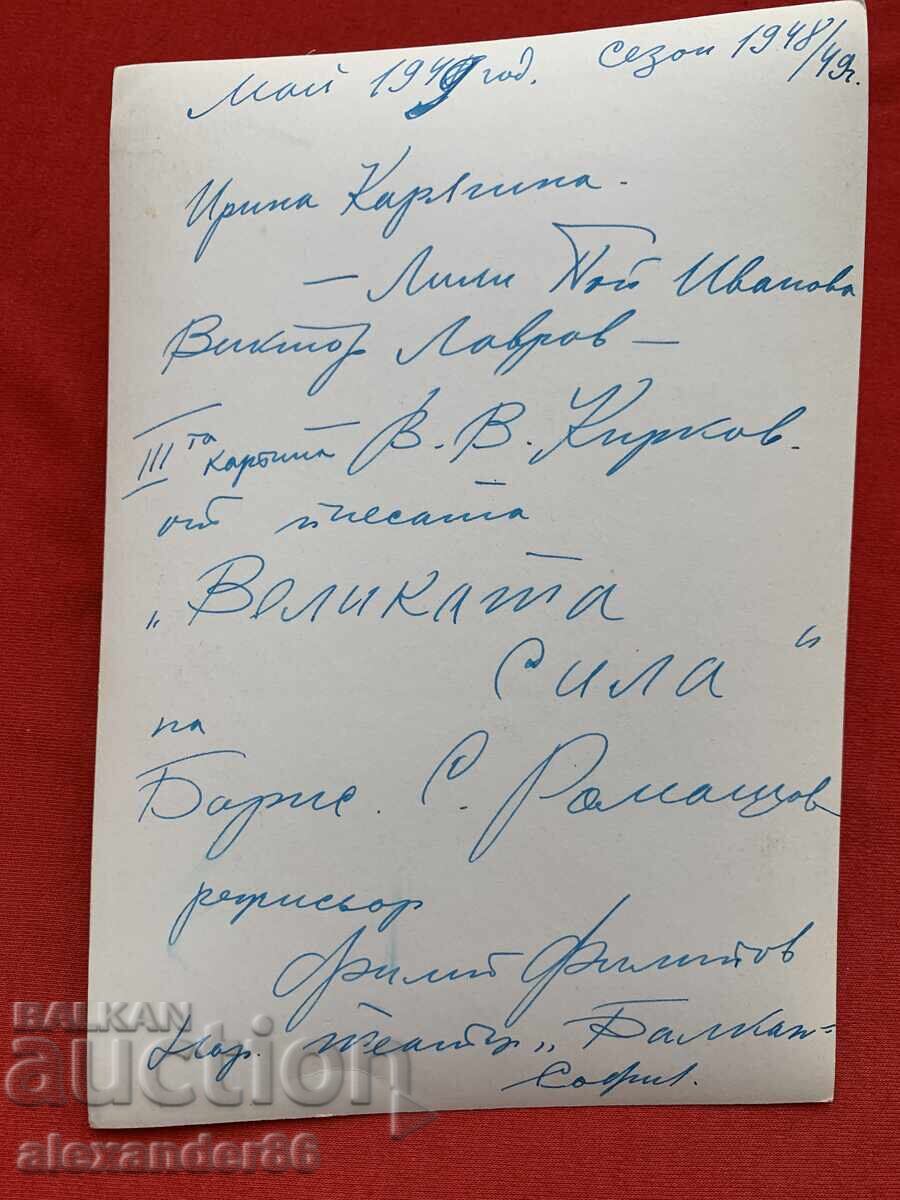 Май 1949 год. Сезон 1948/49г.
Ирина Карягина.
— Лили Поп Иванова
Виктор Лавров —
III та картина В. В. Кирков.
от пиесата
„Великата
Сила"
на
Борис. С. Ромашов
режисьор
Филип Филипов
Нар. театър „Балкан"
София.
BALKAN
auction
alexander86